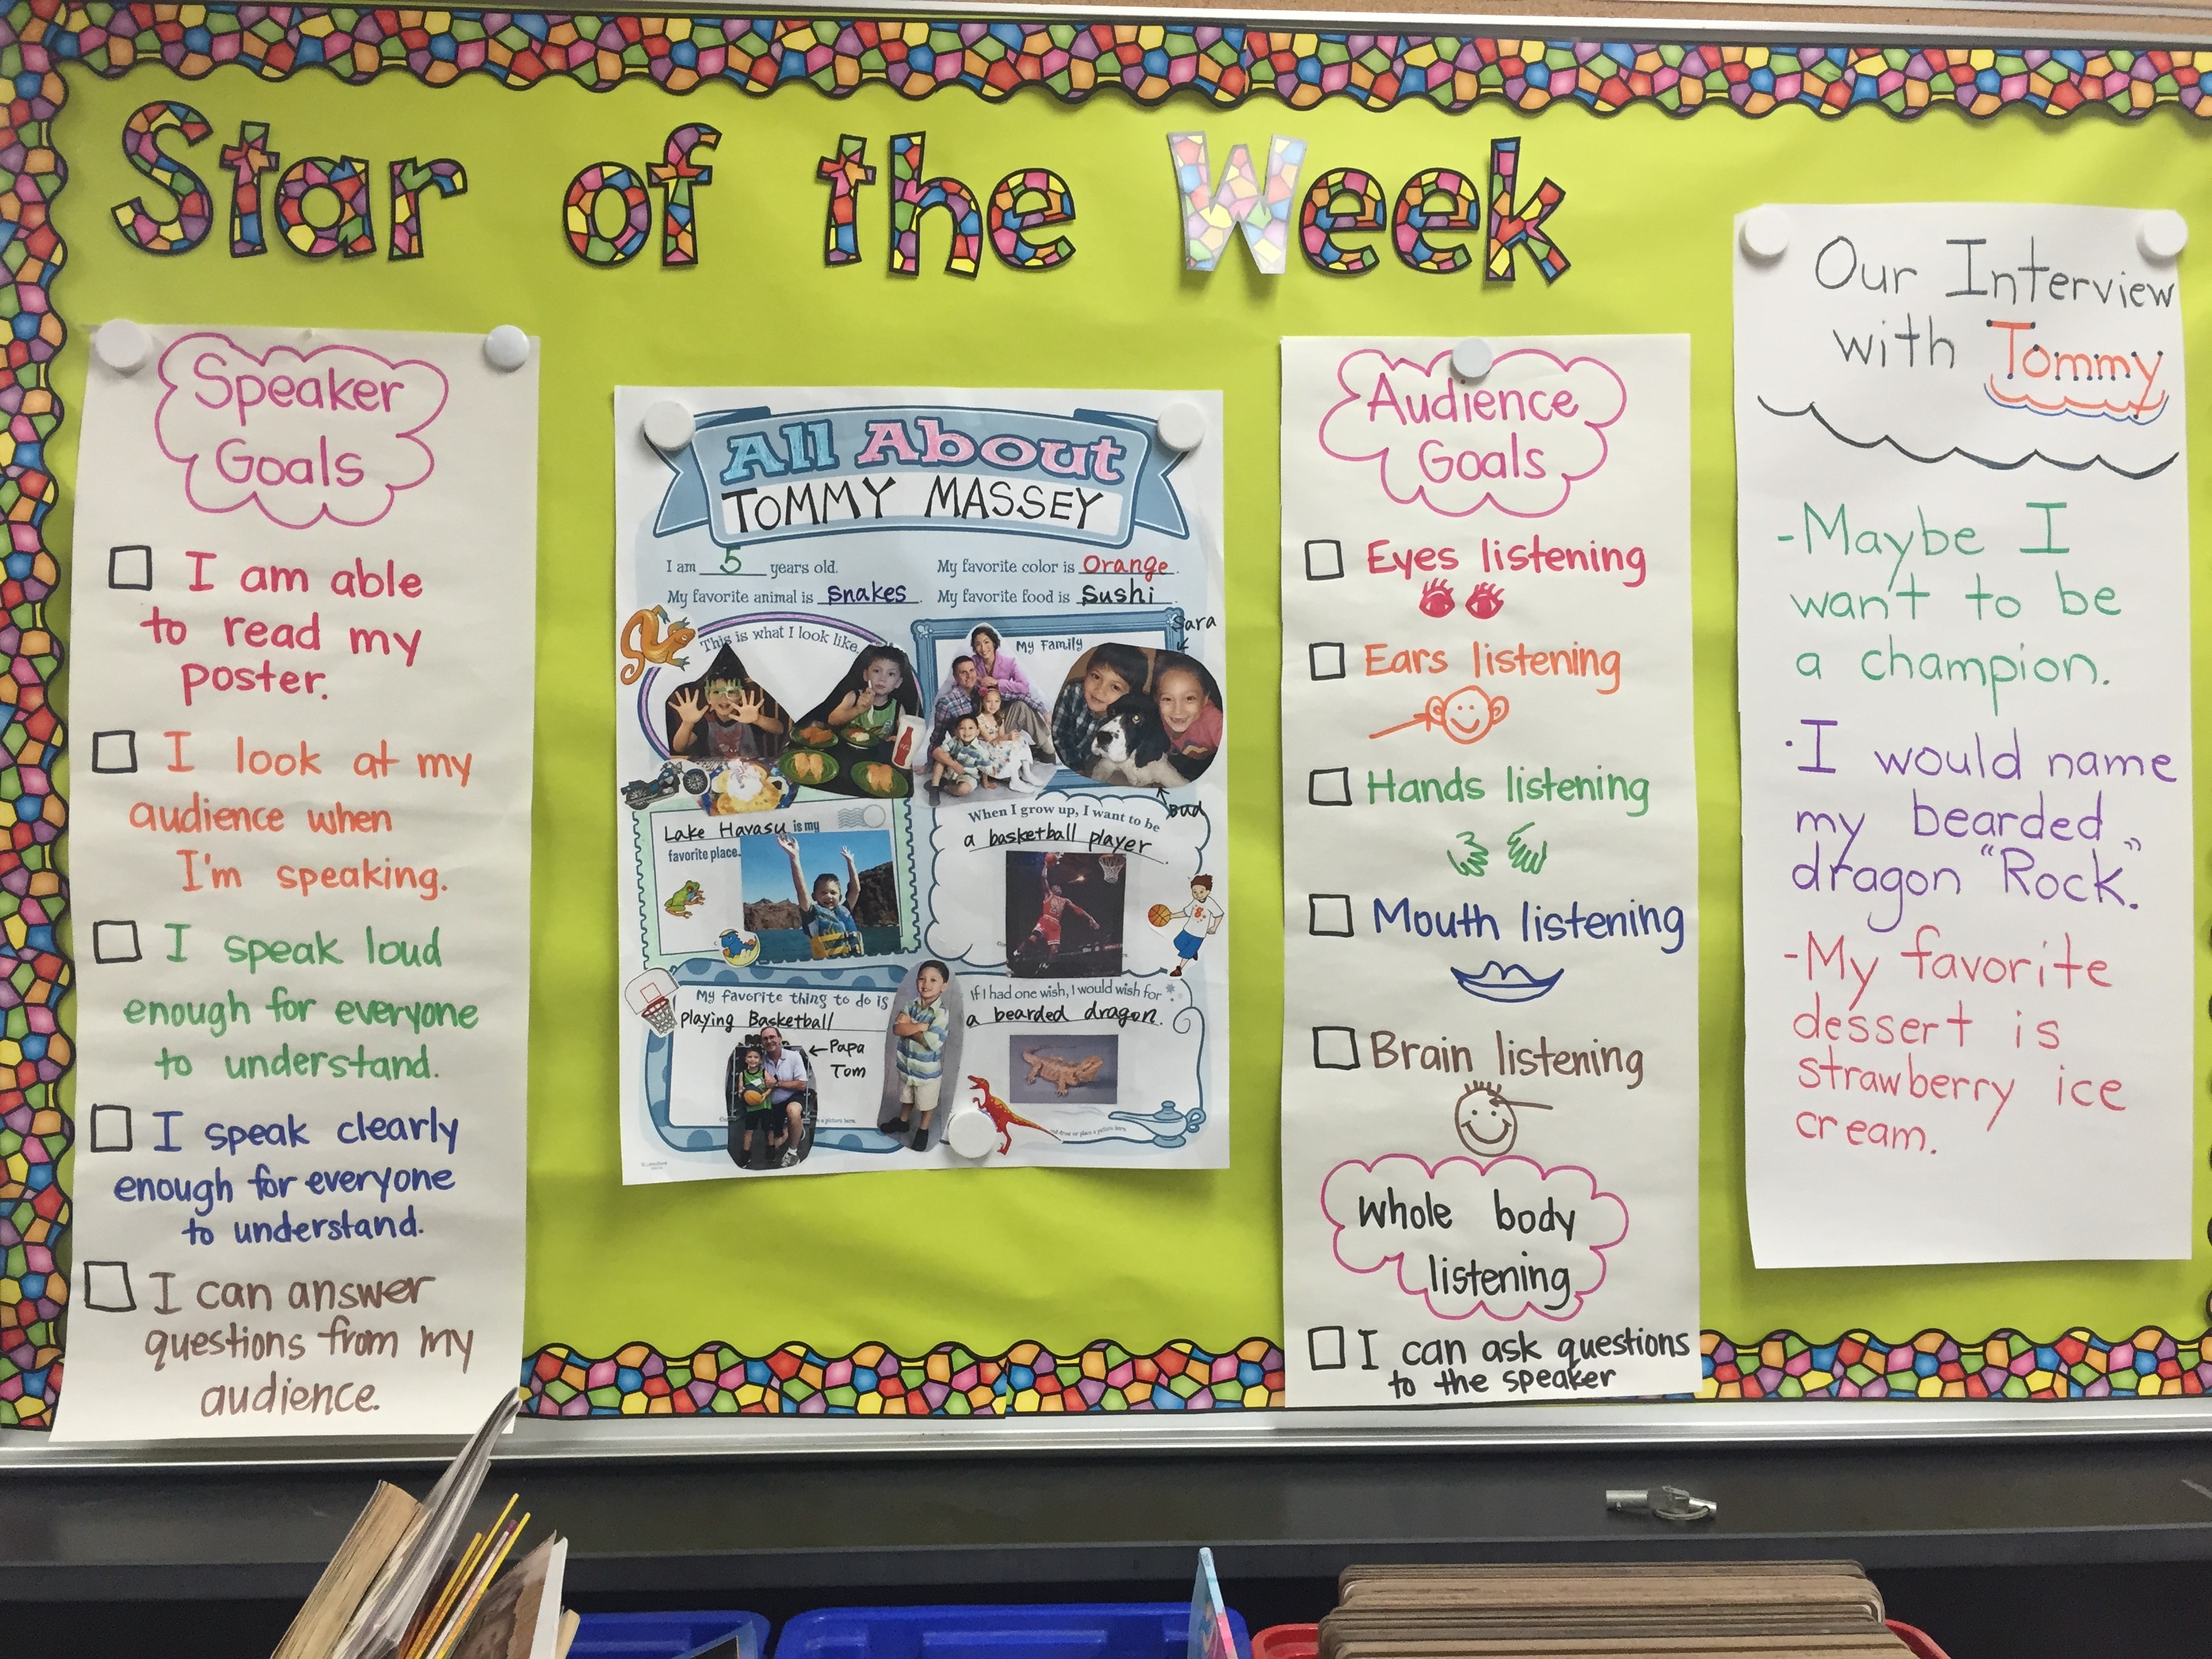 Star of the Week
Speaker
Goals
I am able
to read my
poster.
I look at my
audience when
I'm speaking.
I speak loud
enough for everyone
to understand.
I speak clearly
enough for everyone
to understand.
I can answer
questions from my
audience.
All About
TOMMY MASSEY
I am 5 years old.
My favorite color is Orange.
My favorite animal is snakes.
My favorite food is Sushi.
This is what I look like.
My Family
Sara
Lake Havasu is my
favorite place.
When I grow up, I want to be
a basketball player.
My favorite thing to do is
playing Basketball
←Papa
Tom
If I had one wish, I would wish for
a bearded dragon.
Audience
Goals
Eyes listening
Ears listening
Hands listening
Mouth listening
Brain listening
whole body
listening
I can ask questions
to the speaker
Our Interview
with Tommy
-Maybe I
want to be
a champion.
·I would name
my bearded
dragon “Rock.”
-My favorite
dessert is
strawberry ice
cream.